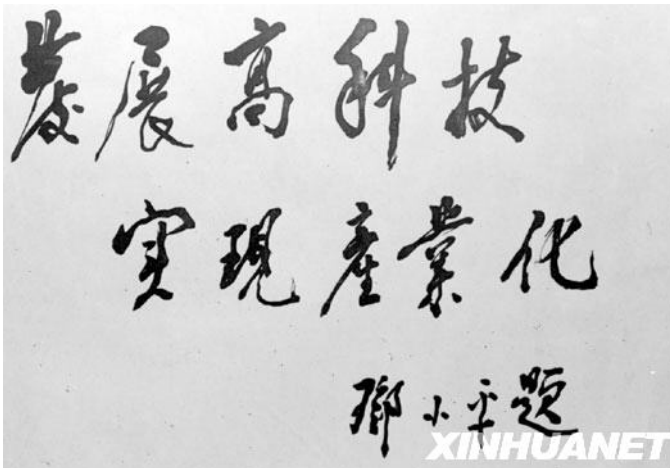 發展高科技
實現產業化
鄧小平題
XINHUANET